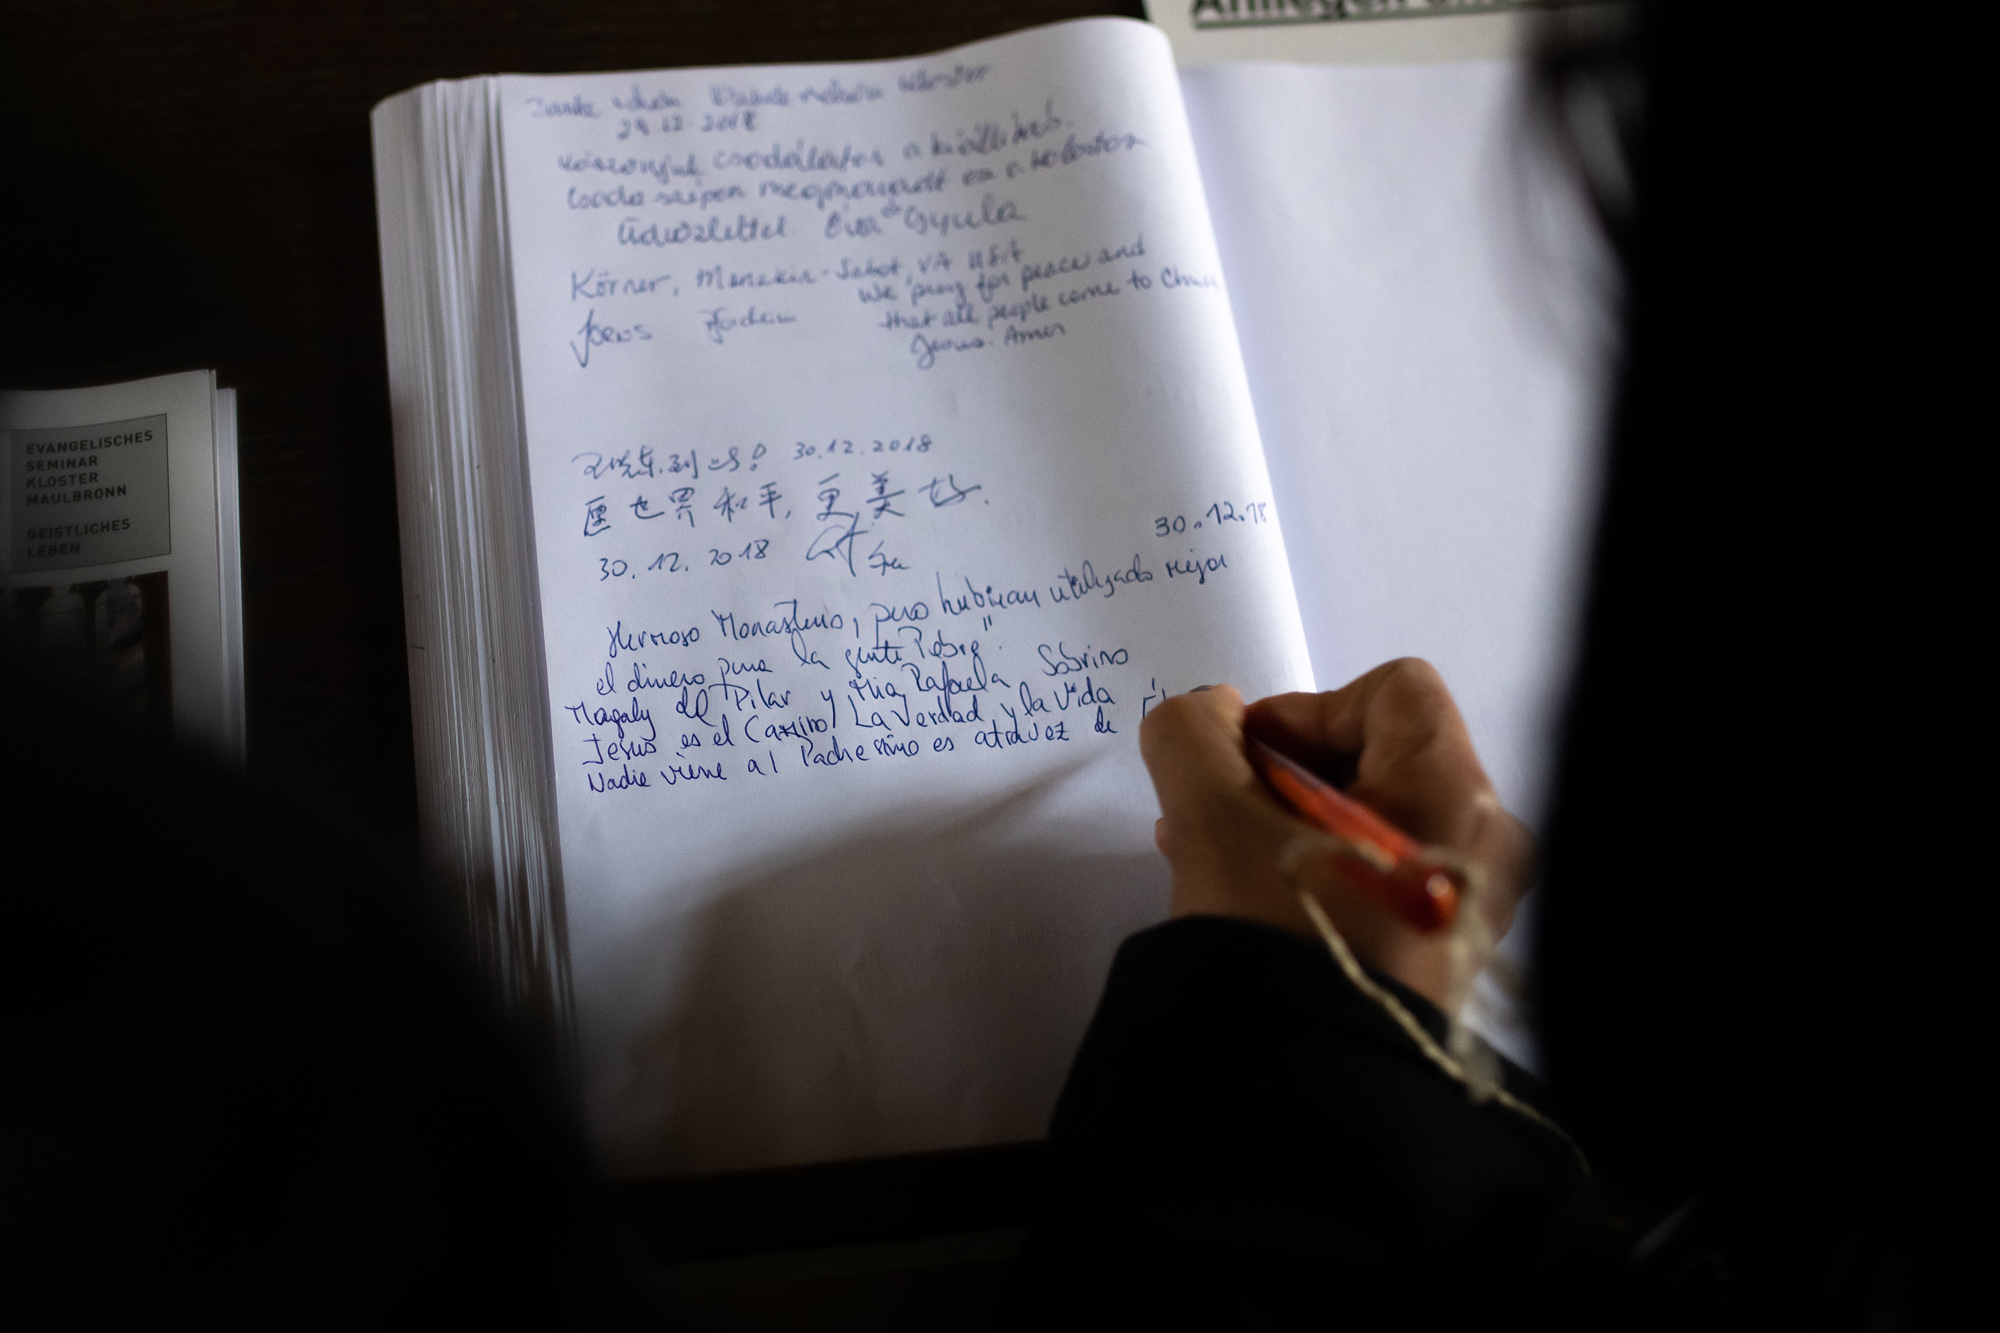 29.12.2018
Köszönjük csodálatos a kiállítás.
Csoda szépen megmaradt ez a kolostor
Üdvözlettel Éva és Gyula
Körner, Manakin-Sabot, VA USA
We pray for peace and
that all people come to
Jesus. Amen
30.12.2018
愿世界和平,更美好.
30.12.2018
30.12.18
Hermoso Monasterio, pero hubieran utilizado mejor
el dinero para la gente Pobre".
Magaly del Pilar y Mia Rafaela Sobrino
Jesus es el Camino, La Verdad y la Vida
Nadie viene al Padre sino es atravez de Él
EVANGELISCHES
SEMINAR
KLOSTER
MAULBRONN
GEISTLICHES
LEBEN